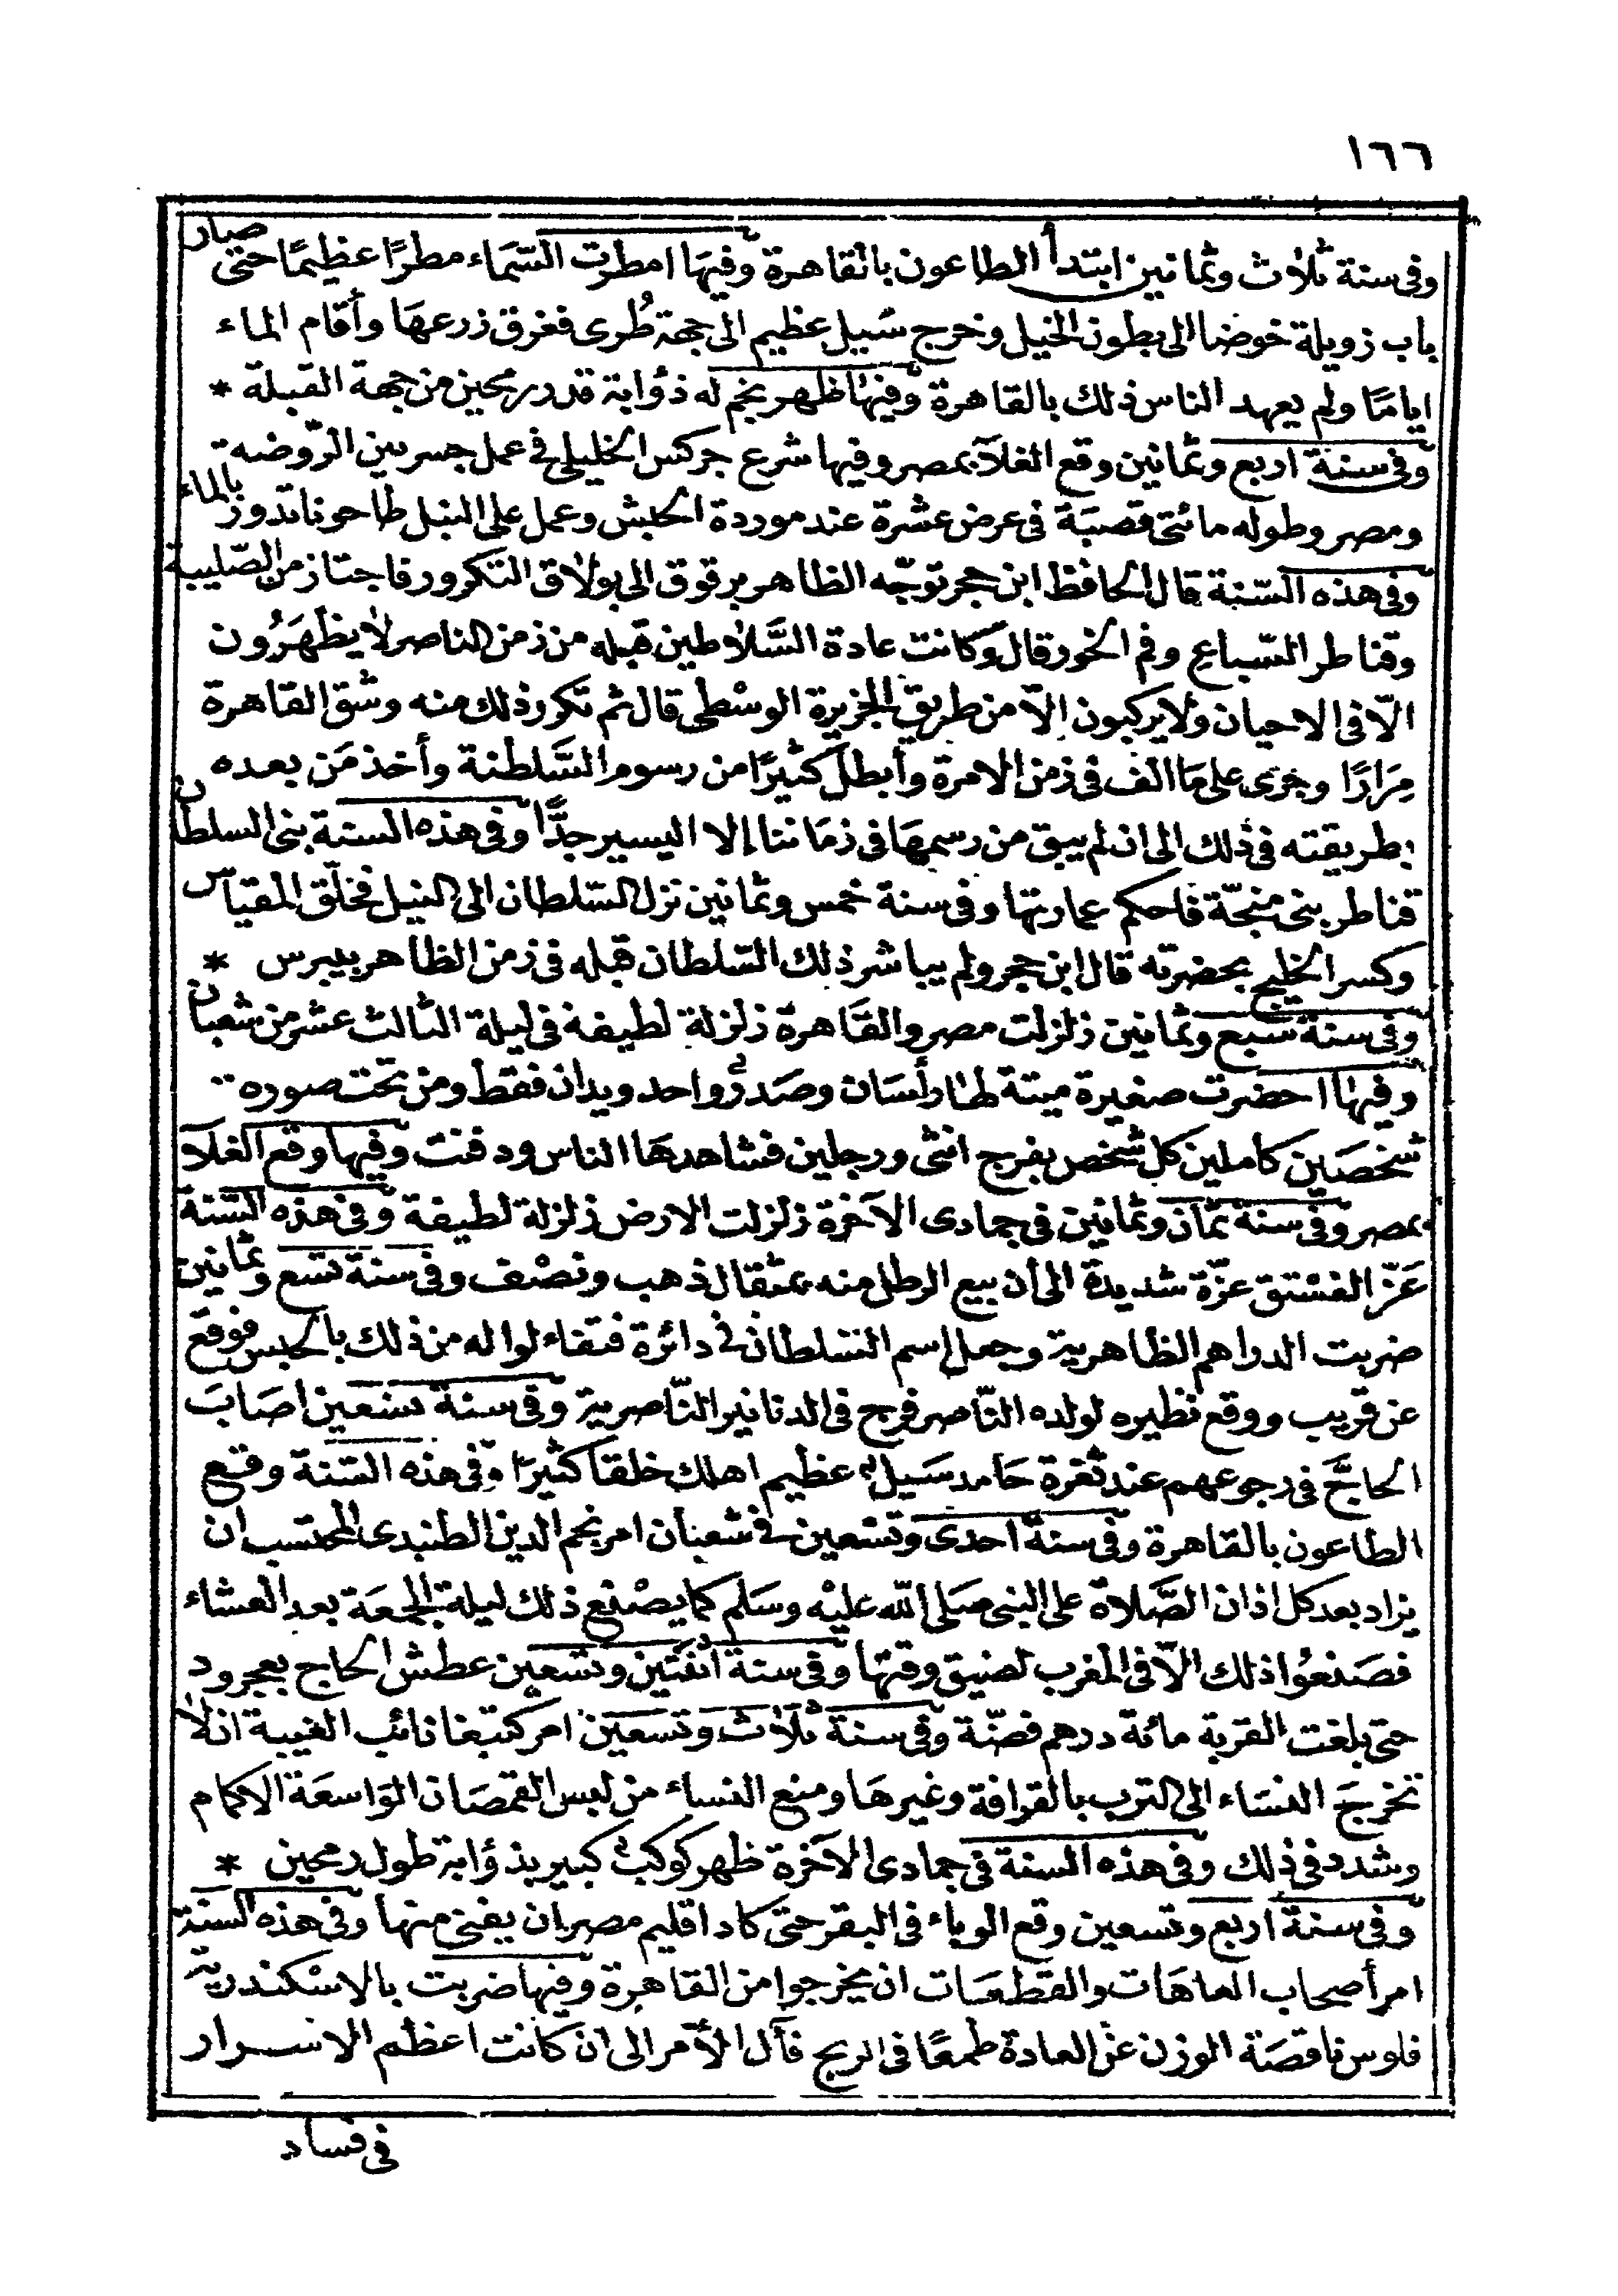 ١٦٦
وفى سنة ثلاث وثمانين ابتدأ الطاعون بالقاهرة وفيها امطرت السّماء مطرًا عظيمًا حتى صار
باب زويلة خوضا الى بطون الخيل وخرج سَيل عظيم الى جهة طُرى فغرق زرعها وأقام الماء
ايامًا ولم يعهد الناس ذلك بالقاهرة وفيها ظهر نجم له ذؤابة قدر رمحين من جهة القبلة *
وفى سنة اربع وثمانين وقع الغلآ بمصر وفيها شرع جركس الخليلى فى عمل جسر بين الرّوضة
ومصر وطوله مائتى قصبَة فى عرض عشرة عند موردة الحبش وعمل على النيل طاحونا تدور بالماء
وفى هذه السّنة قال الحافظ ابن حجر توجّه الظاهر برقوق الى بولاق التكرور فاجتاز من الصّليبة
وقناطر السّباع وفم الخور قال وكانت عادة السَّلاطين قبله من زمن الناصر لا يظهَرُون
الّا فى الاحيان ولا يركبون الّا من طريق الجزيرة الوسْطى قال ثم تكرر ذلك منه وشق القاهرة
مِرَارًا وجرى على مَا الف فى زمن الامرة وأبطل كثيرًا من رسوم السَّلطنة وأخذ مَن بعده
بطريقته فى ذلك الى ان لم يبق من رسمهَا فى زمَاننا إلا اليسير جدًّا وفى هذه السنة بنى السلطان
قناطر بنى منجّة فاحكم عمارتها وفى سنة خمس وثمانين نزل السّلطان الى النيل فخلّق المقياس
وكسر الخليج بحضرته قال ابن حجر ولم يباشر ذلك السّلطان قبله فى زمن الظاهر بيبرس *
وفى سنة سَبع وثمانين زلزلت مصر والقَاهرة زلزلة لطيفة فى ليلة الثالث عشر من شعبان
وفيها احضرت صغيرة ميتة لها رأسَان وصَدرٌ واحد ويدان فقط ومن تحت صوره
شخصَين كاملين كل شخص بفرج انثى ورجلين فشاهدهَا الناس ودفنت وفيها وقع الغلآ
بمصر وفى سنة ثمان وثمانين فى جمادى الآخرة زلزلت الارض زلزلة لطيفة وفى هذه السّنة
عَزّ الفسْتق عزّة شديدة الى أن بيع الرطل منه بمثقال ذهب ونصْف وفى سنة تسع وثمانين
ضربت الدراهم الظاهرية وجعل اسم السّلطان فى دائرة فتفاءلوا له من ذلك بالحبس فوقع
عن قريب ووقع نظيره لولده النّاصر فرج فى الدنانير النّاصرية وفى سنة تسعين اصَابَ
الحاجّ فى رجوعهم عند ثغرة حَامد سَيلٌ عظيم اهلك خلقا كثيرًا وفى هذه السّنة وقع
الطاعون بالقاهرة وفى سنة احدى وتسعين فى شعبان امر نجم الدين الطنبدى المحتسب ان
يزاد بعد كل اذان الصَّلاة على النبى صَلى الله عليْه وسَلم كما يصْنع ذلك ليلة الجمعَة بعد العشاء
فصَنعُوا ذلك الّا فى المغرب لضيق وقتها وفى سنة اثنتين وتسعين عطش الحاج بعجرود
حتى بلغت القربة مائة درهم فضّة وفى سنة ثلاث وتسعين امر كتبغا نائب الغيبة ان لا
تخرجَ النسَاء الى الترب بالقرافة وغيرهَا ومنع النساء من لبس القمصَان الوَاسعَة الاكمام
وشدد فى ذلك وفى هذه السنة فى جمادى الآخرة ظهر كوكبٌ كبير بذؤابة طول رمحين *
وفى سنة اربع وتسعين وقع الوباء فى البقر حتى كاد اقليم مصر ان يفنى منها وفى هذه السنة
امر أصحاب العاهَات والقطعَات ان يخرجوا من القاهرة وفيها ضربت بالاسْكندرية
فلوس ناقصَة الوزن عن العادة طمعًا فى الربح فآل الأمر الى ان كانت اعظم الاسرار
فى فساد